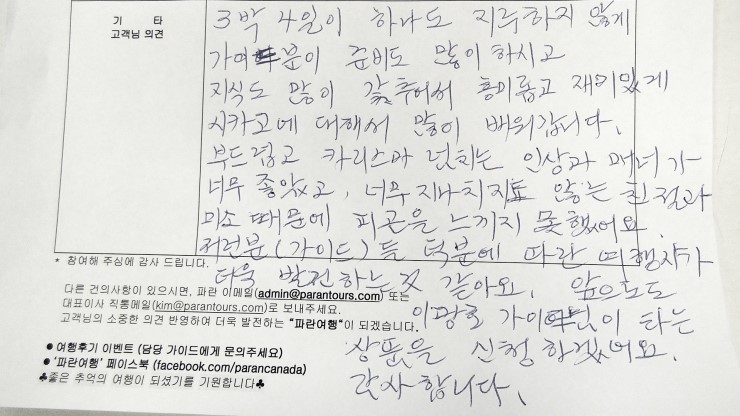 기 타
고객님 의견
3박 4일이 하나도 지루하지 않게
가이드분이 준비도 많이 하시고
지식도 많이 갖추어서 흥미롭고 재미있게
시카고에 대해서 많이 배워갑니다.
부드럽고 카리스마 넘치는 인상과 매너가
너무 좋았고, 너무 지나치지도 않는 친절과
미소 때문에 피곤을 느끼지 못했어요.
저런분(가이드)들 덕분에 파란 여행사가
더욱 발전하는것 같아요. 앞으로도
이광호 가이드님이 타는
상품을 신청하겠어요.
감사합니다.
* 참여해 주심에 감사 드립니다.
다른 건의사항이 있으시면, 파란 이메일(admin@parantours.com) 또는
대표이사 직통메일(kim@parantours.com)로 보내주세요.
고객님의 소중한 의견 반영하여 더욱 발전하는 "파란여행"이 되겠습니다.
● 여행후기 이벤트 (담당 가이드에게 문의주세요)
● '파란여행' 페이스북 (facebook.com/parancanada)
♣좋은 추억의 여행이 되셨기를 기원합니다♣